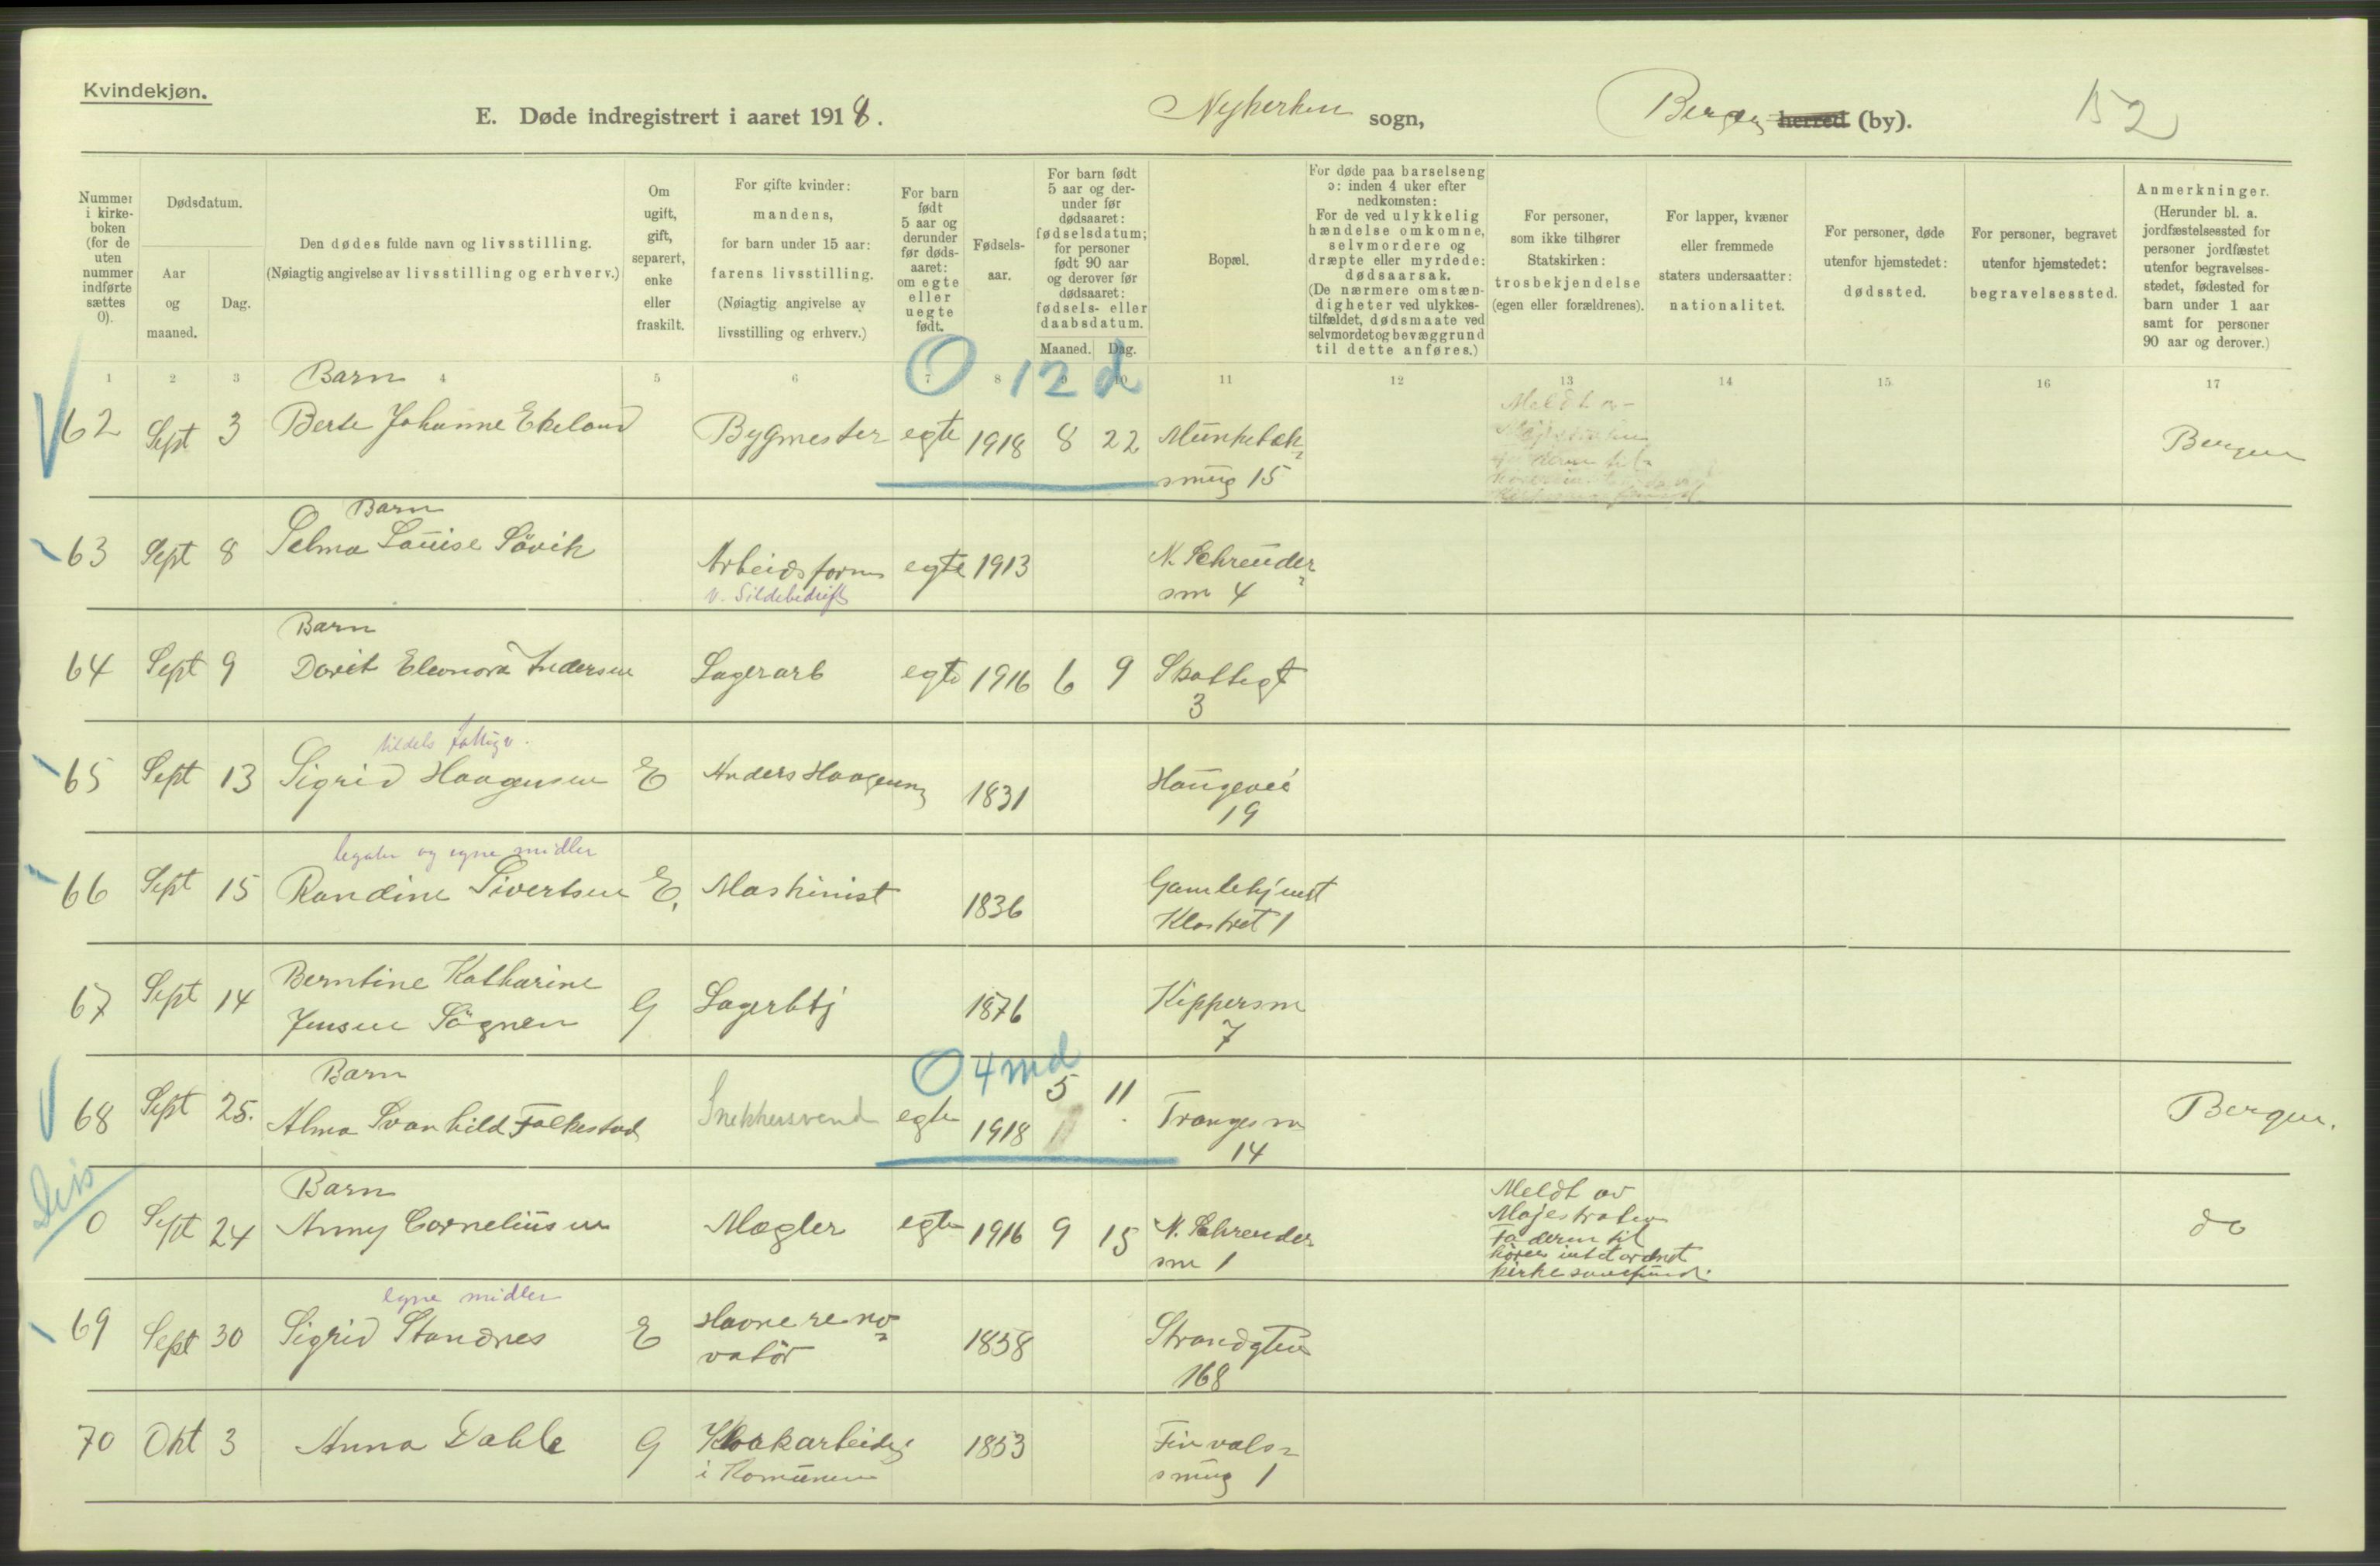 Kvindekjøn.
E. Døde indregistrert i aaret 1918. Nykerken sogn, Bergen herred (by). 152
Nummer i kirke-boken (for de uten nummer indførte sættes 0).
Dødsdatum.
Aar og maaned.
Dag.
Den dødes fulde navn og livsstilling.
(Nøiagtig angivelse av livsstilling og erhverv.)
Om ugift, gift, separert, enke eller fraskilt.
For gifte kvinder: mandens, for barn under 15 aar: farens livsstilling. (Nøiagtig angivelse av livsstilling og erhverv.)
For barn født 5 aar og derunder før døds-aaret: om egte eller uegte født.
Fødsels-aar.
For barn født 5 aar og der-under før dødsaaret: fødselsdatum; for personer født 90 aar og derover før dødsaaret: fødsels- eller daabsdatum.
Maaned. Dag.
Bopæl.
For døde paa barselseng ɔ: inden 4 uker efter nedkomsten:
For de ved ulykkelig hændelse omkomne, selvmordere og dræpte eller myrdede: dødsaarsak.
(De nærmere omstæn-digheter ved ulykkes-tilfældet, dødsmaate ved selvmordet og bevæggrund til dette anføres.)
For personer, som ikke tilhører Statskirken: trosbekjendelse (egen eller forældrenes).
For lapper, kvæner eller fremmede staters undersaatter: nationalitet.
For personer, døde utenfor hjemstedet: dødssted.
For personer, begravet utenfor hjemstedet: begravelsessted.
Anmerkninger.
(Herunder bl. a. jordfæstelsessted for personer jordfæstet utenfor begravelses-stedet, fødested for barn under 1 aar samt for personer 90 aar og derover.)
1 2 3 4 5 6 7 8 9 10 11 12 13 14 15 16 17
Barn 0 12 d
62 Sept 3 Berte Johanne Ekeland Bygmester egte 1918 8 22 Munkebæk- Bergen
smug 15
Barn
63 Sept 8 Selma Louise Søvik Arbeidsform egte 1913 N. Schreuder-
v. Sildebedrift sm 4
Barn
64 Sept 9 Dorit Eleonora Andersen Lagerarb egte 1916 6 9 Skottegt
3
tildels fattigv.
65 Sept 13 Sigrid Haagensen E Anders Haagensen 1831 Haugevei
19
legater og egne midler
66 Sept 15 Randine Sivertsen E. Maskinist 1836 Gamlehjemt
Klostret 1
67 Sept 14 Berntine Katharine
Jensen Søgnen G Lagerbtj 1876 Kippersm
7
Barn 0 4 md
68 Sept 25. Alma Svanhild Falkestad Snekkersvend egte 1918 5 11 Trangesm Bergen.
14
Barn
0 Sept 24 Anny Corneliusen Mægler egte 1916 9 15 N. Schreuder do
sm 1
Meldt av
Majestraten
Faderen til
hører intet ordnet
kirkesamfund.
egne midler
69 Sept 30 Sigrid Standnes E Havnereno-
vatør 1858 Strandgten
168
70 Okt 3 Anna Dahle G Kloakarbeider 1853 Finvals-
i Komunen smug 1